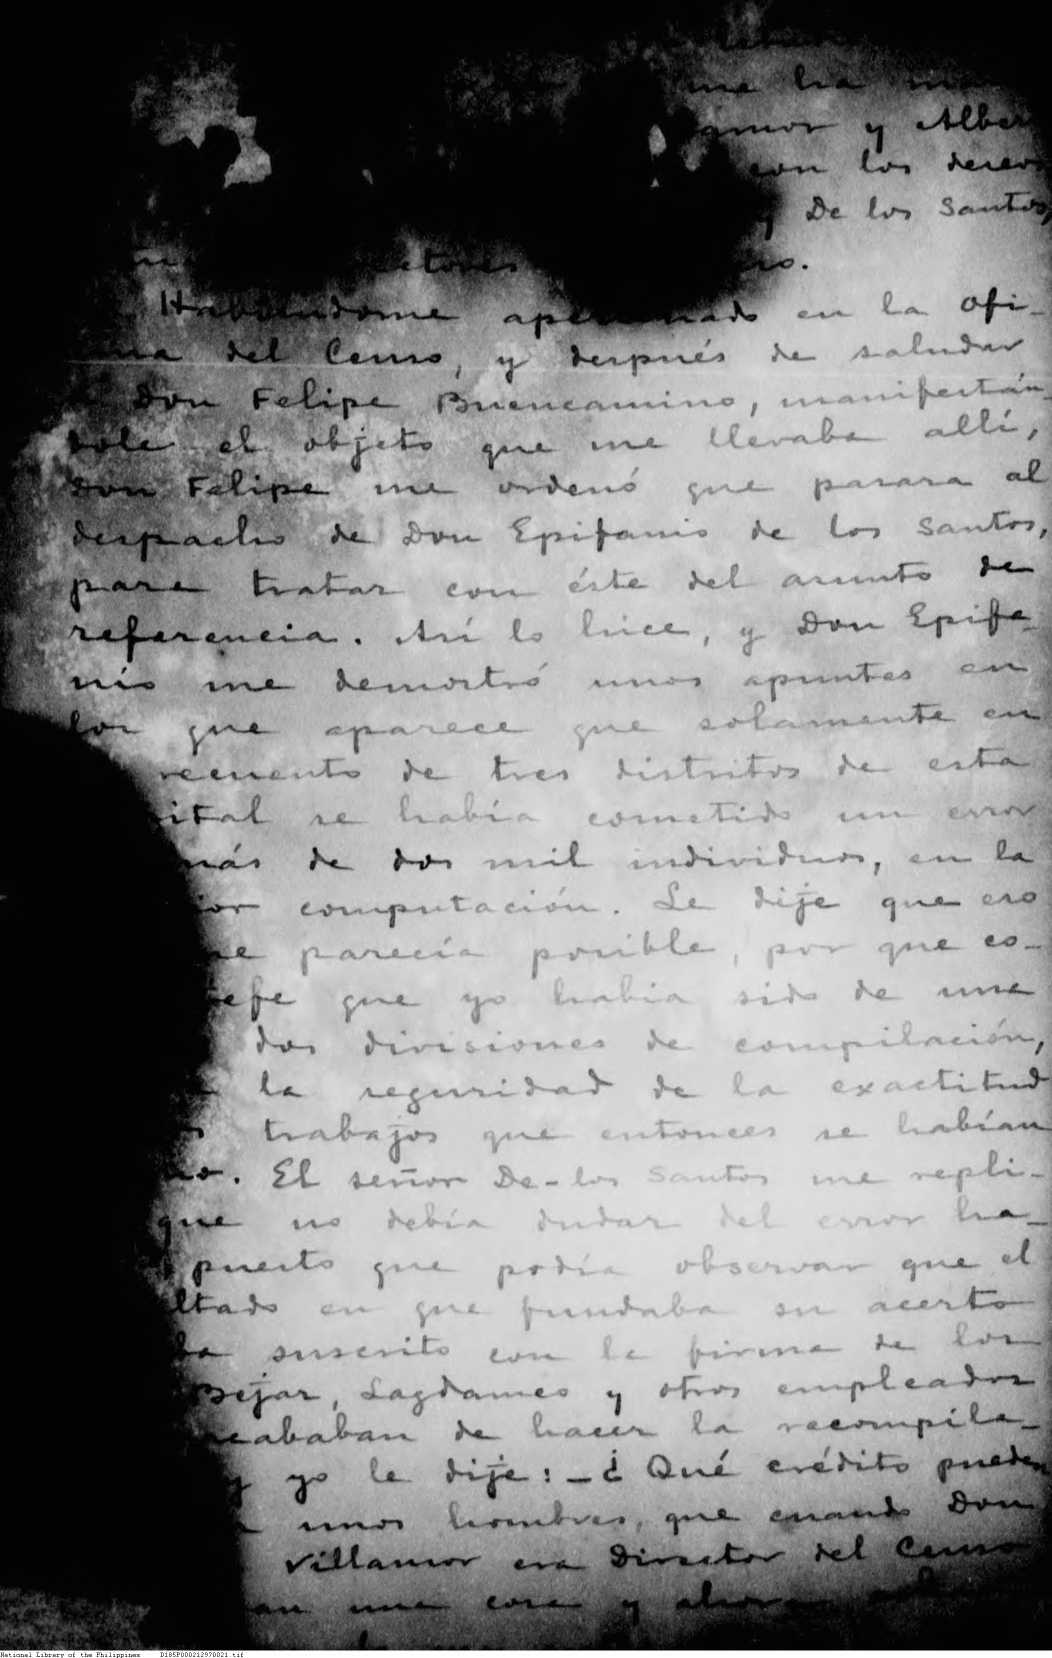 me ha
y Alber
con los deseos
y De los Santos,
Habiéndome apersonado en la Ofi-
del Censo, y después de saludar
Don Felipe Buencamino, manifestán-
dole el objeto que me llevaba allí,
Don Felipe me ordenó que pasara al
despacho de Don Epifanio de los Santos,
para tratar con éste del asunto de
referencia. Así lo hice, y Don Epifa-
nio me demostró unos apuntes en
los que aparece que solamente en
recuento de tres distritos de esta
ital se había cometido un error
más de dos mil individuos, en la
ior computación. Le dije que eso
me parecía posible, por que co-
jefe que yo había sido de una
dos divisiones de compilación,
la seguridad de la exactitud
trabajos que entonces se habían
El señor De-los Santos me repli-
que no debía dudar del error ha-
puesto que podía observar que el
ltado en que fundaba su acerto
suscrito con la firma de los
Bejar, Lagdameo y otros empleados
acababan de hacer la recompila-
y yo le dije: -¿ Qué crédito pueden
unos hombres, que cuando Don
Villamor era Director del Censo
una cosa y ahora